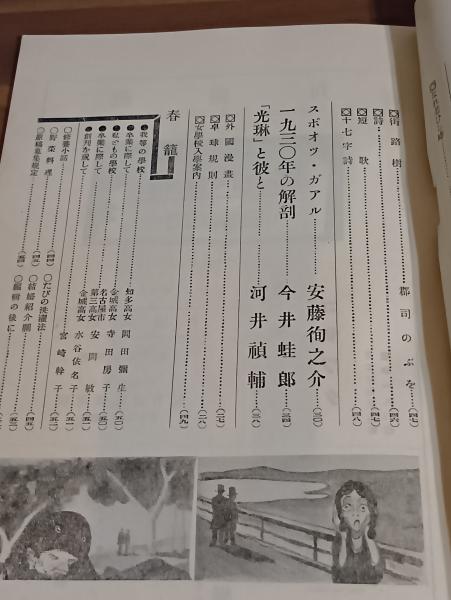 街路樹……郡司のぶを…(四七)
詩……(四六)
短歌……(四七)
十七字詩……(四八)
スポオツ・ガアル……安藤徇之介…(三〇)
一九三〇年の解剖……今井蛙郎…(三四)
「光琳」と彼と……河井禎輔…(三八)
外國漫畫……(二七)
卓球規則……(二八)
女學校入學案内……(四九)
春籠
我等の學校……知多高女 岡田彌生…(五〇)
卒業に際して……金城高女 寺田房子…(五一)
私どもの學校……名古屋市第三高女 安間敏…(五一)
卒業に際して……金城高女 水谷依名子…(五一)
創刊を祝して……宮崎幹子…(五二)
修養小話……(四四)
野菜料理……(四五)
原稿募集規定……(五四)
たびの洗濯法……(四五)
結婚紹介欄……(五三)
編輯の後に……(五